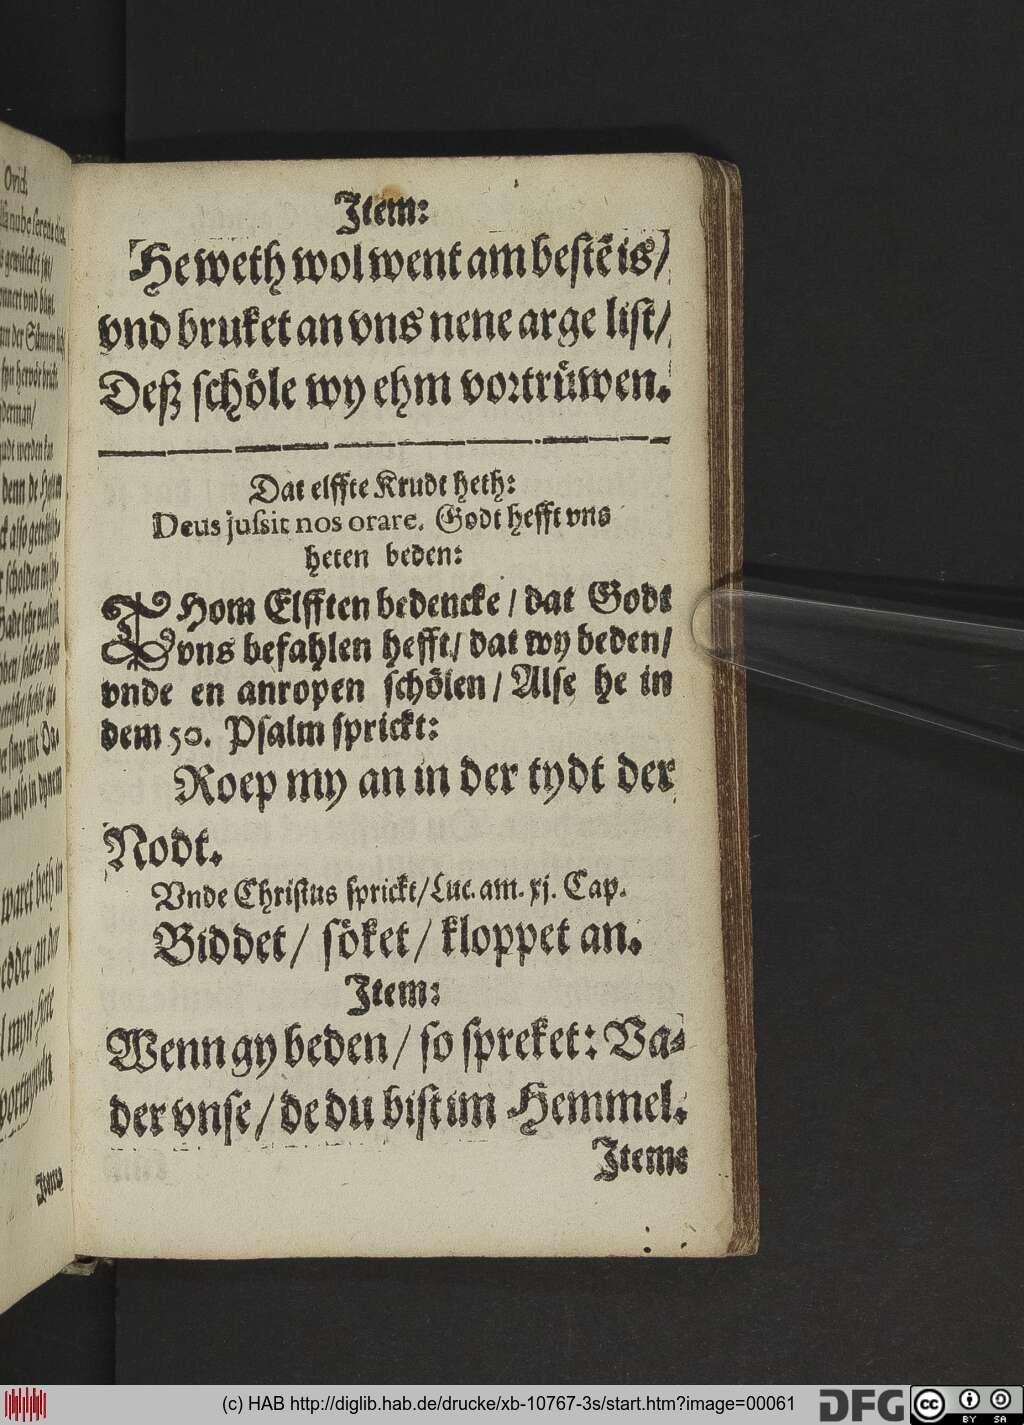 Item:
He weth wol went am bestē is/
vnd bruket an vns nene arge list/
Deß schöle wy ehm vortrüwen.
Dat elffte Krudt heth:
Deus jussit nos orare. Godt hefft vns
heten beden:
THom Elfften bedencke / dat Godt
vns befahlen hefft / dat wy beden /
vnde en anropen schölen / Alse he in
dem 50. Psalm sprickt:
Roep my an in der tydt der
Nodt.
Vnde Christus sprickt / Luc. am. xj. Cap.
Biddet / söket / kloppet an.
Item:
Wenn gy beden / so spreket: Va-
der vnse / de du bist im Hemmel.
Item:
(c) HAB http://diglib.hab.de/drucke/xb-10767-3s/start.htm?image=00061
DFG
cc BY SA